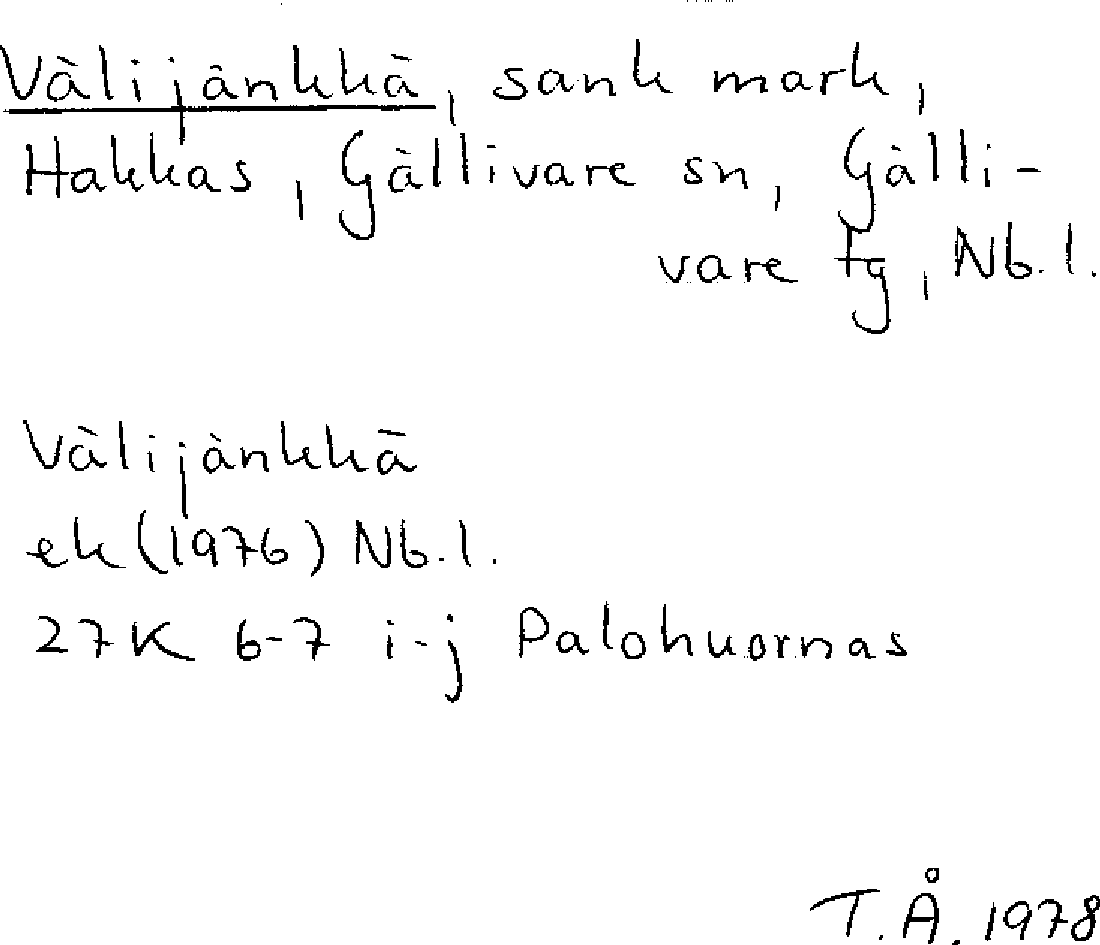 Välijänkkä, sank mark,
Hakkas, Gällivare sn, Gälli-
vare tg, Nb.l.
Välijänkkä
ek (1976) Nb.l.
27K 6-7 i-j Palohuornas
T.Å. 1978